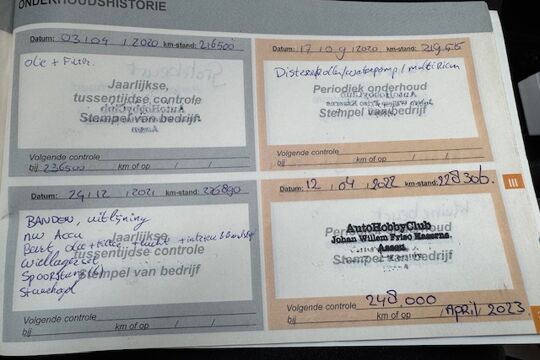 ONDERHOUDSHISTORIE
Datum: 03/04 / 2020 km-stand: 216500
olie + Filtr.
Jaarlijkse,
tussentijdse controle
Stempel van bedrijf
Volgende controle
bij 236500 km of op / /
Datum: 17/09 / 2020 km-stand:
Distributie/waterpomp/multiriem
Periodiek onderhoud
Stempel van bedrijf
Volgende controle
bij km of op / /
Datum: 24/12 / 2021 km-stand: 226890
BANDEN, uitlijning
nw Accu
Beurt, olie + filter + lucht + interieur
Jaarlijkse,
Wiellagerset
tussentijdse controle
Spoorstang
Stempel van bedrijf
Volgende controle
bij km of op / /
Datum: 12 / 04 / 2022 km-stand: 228306.
AutoHobbyClub
Johan Willem Friso Kazerne
Assen
Stempel van bedrijf
Volgende controle 248,000
bij km of op / April 2023
III